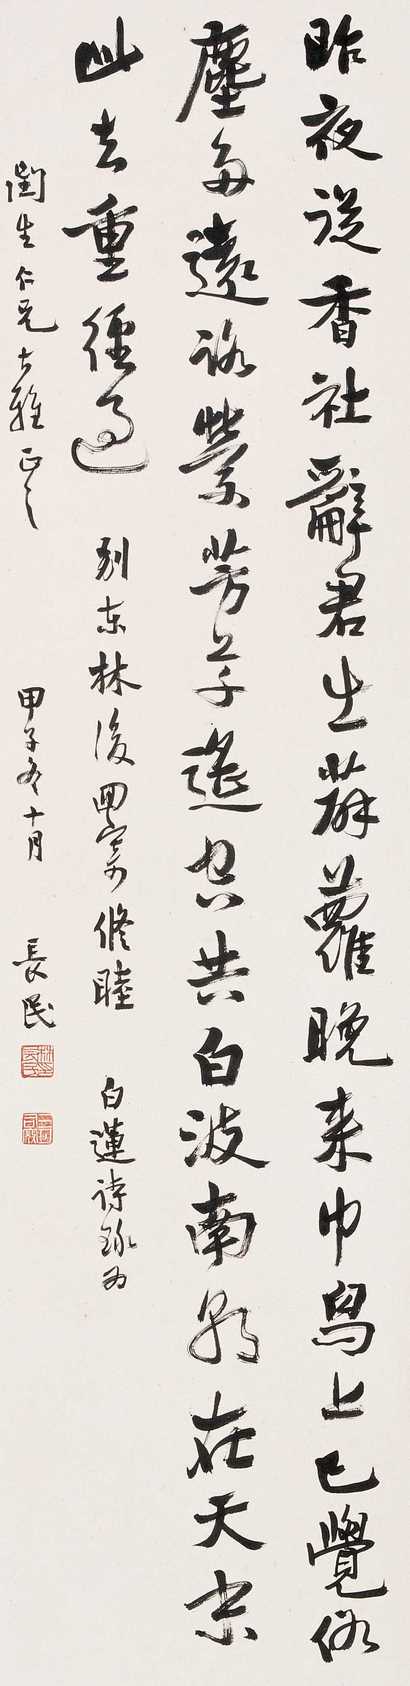 昨夜從香社辭君出薜蘿晚来巾舄上已覺俗
塵多遠路縈芳草遙空共白波南朝在天末
此去重經過 別東林後回寄修睦 白蓮詩錄為
閏生仁兄大雅正之 甲子冬十月 長民